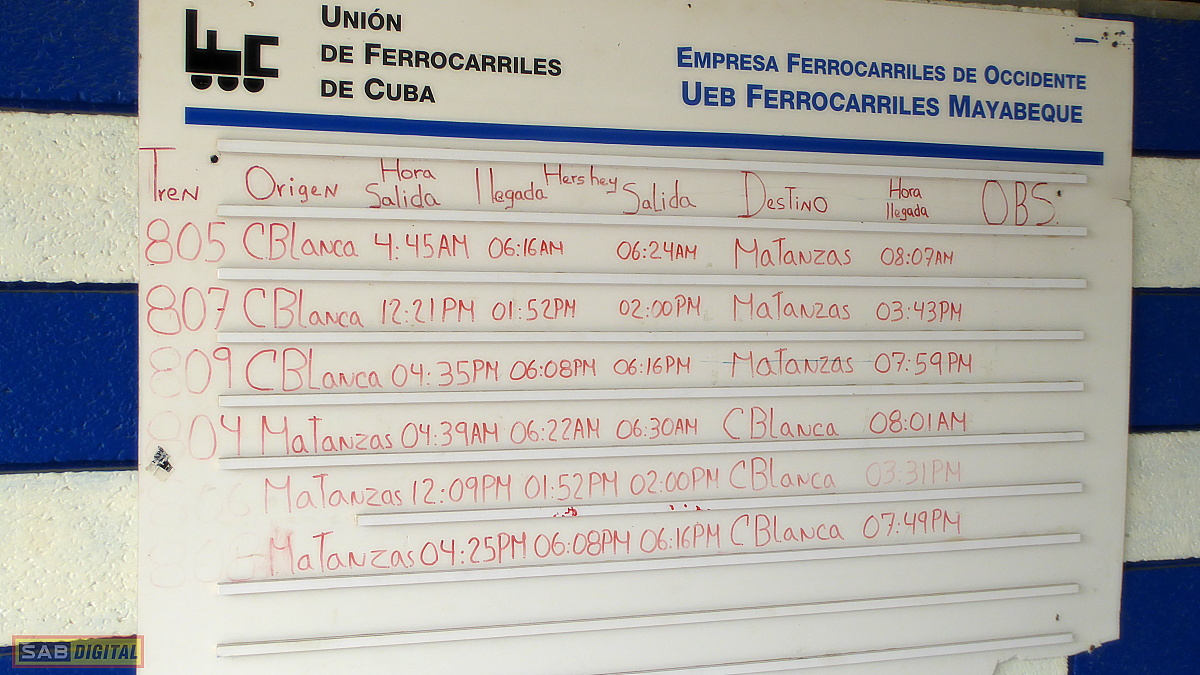 UNIÓN
DE FERROCARRILES
DE CUBA
EMPRESA FERROCARRILES DE OCCIDENTE
UEB FERROCARRILES MAYABEQUE
Tren Origen Hora Salida llegada Hershey Salida Destino Hora llegada OBS:
805 CBlanca 4:45AM 06:16AM 06:24AM Matanzas 08:07AM
807 CBlanca 12:21PM 01:52PM 02:00PM Matanzas 03:43PM
809 CBlanca 04:35PM 06:08PM 06:16PM Matanzas 07:59PM
804 Matanzas 04:39AM 06:22AM 06:30AM CBlanca 08:01AM
806 Matanzas 12:09PM 01:52PM 02:00PM CBlanca 03:31PM
808 Matanzas 04:25PM 06:08PM 06:16PM CBlanca 07:49PM
SAB DIGITAL